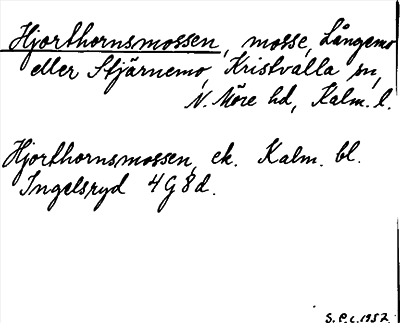 Hjorthornsmossen, mosse, Långemo
eller Stjärnemo, Kristvalla sn,
N. Möre hd, Kalm. l.
Hjorthornsmossen, ek. Kalm. bl.
Ingelsryd 4G8d.
S. P. c. 1952